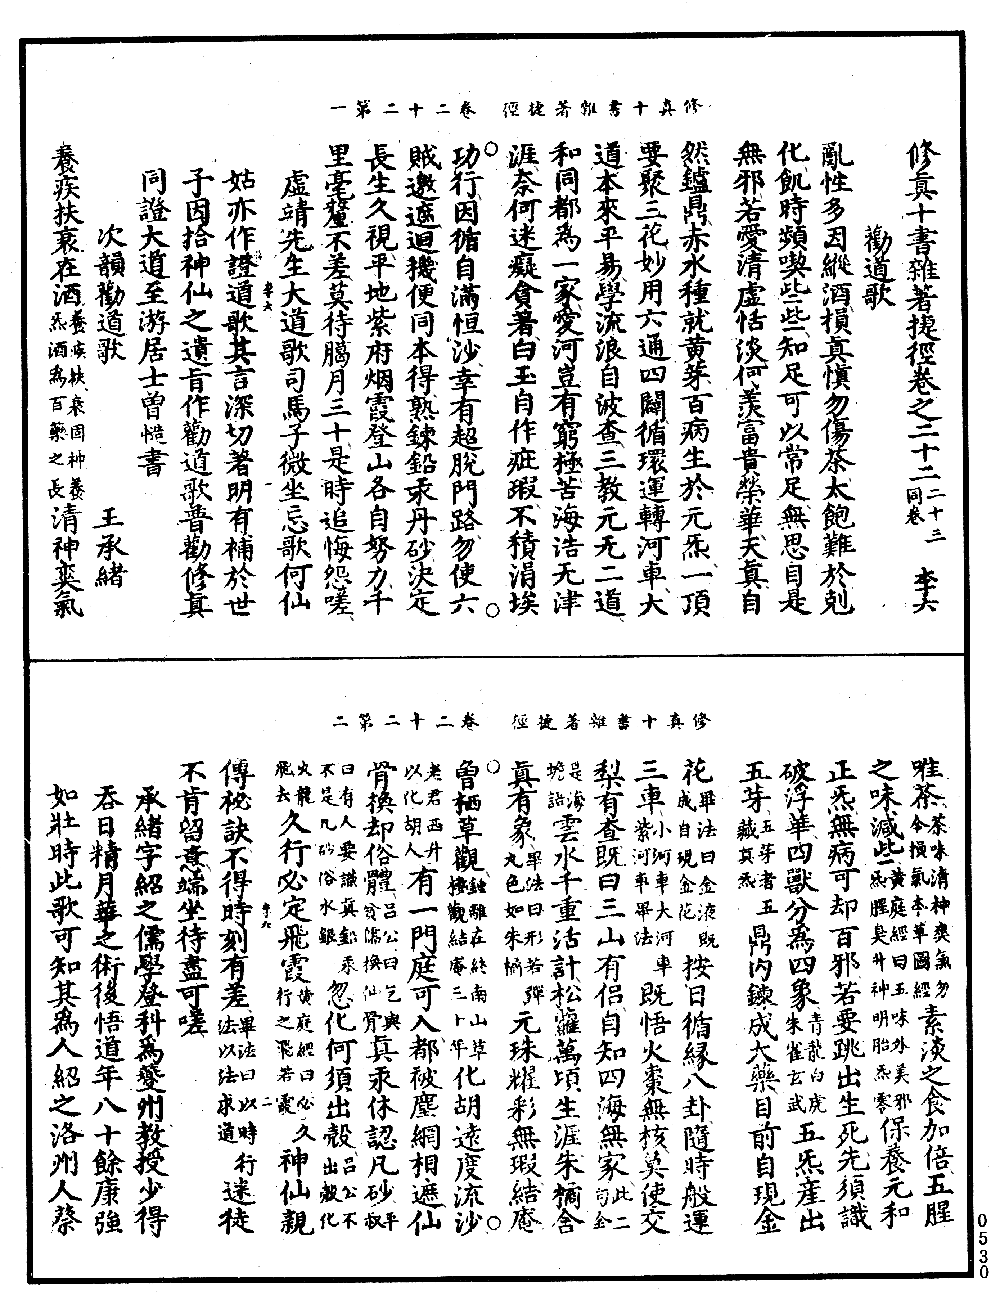 修真十書雜著捷徑　卷二十二第一
修真十書雜著捷徑卷之二十二 二十三同卷　李六
勸道歌
亂性多因縱酒損真慎勿傷茶太飽難於剋
化飢時頻喫些些知足可以常足無思自是
無邪若愛清虛恬淡何羨富貴榮華天真自
然鑪鼎赤水種就黃芽百病生於元炁一頂
要聚三花妙用六通四闢循環運轉河車大
道本來平易學流浪自波查三教元无二道
和同都為一家愛河豈有窮極苦海浩无津
涯奈何迷癡貪著白玉自作疵瑕不積涓埃
功行因循自滿恒沙幸有超脫門路勿使六
賊邀遮迴機便同本得熟鍊鉛汞丹砂決定
長生久視平地紫府烟霞登山各自努力千
里毫釐不差莫待臈月三十是時追悔怨嗟
虛靖先生大道歌司馬子微坐忘歌何仙
姑亦作證道歌其言深切著明有補於世
子因拾神仙之遺旨作勸道歌普勸修真
同證大道至游居士曾慥書
次韻勸道歌　王承緒
養疾扶衰在酒養疾扶衰固神養炁酒為百藥之長清神爽氣
修真十書雜著捷徑　卷二十二第二
唯茶茶味清神爽氣勿令損氣本草圖經素淡之食加倍五腥
之味減些二炁腥臭升神明胎炁零黃庭經曰五味外美邪保養元和
正炁無病可却百邪若要跳出生死先須識
破浮華四獸分為四象青龍白虎朱雀玄武五炁產出
五芽五芽者五藏真炁鼎內鍊成大藥目前自現金
花畢法曰金液既成自現金花按日循緣八卦隨時般運
三車小河車大河車紫河車畢法既悟火棗無核莫使交
梨有查既曰三山有侶自知四海無家此二句金是海蟾詩
雲水千重活計松蘿萬頃生涯朱橘舍
真有象畢法曰形若彈丸色如朱橘元珠耀彩無瑕結庵
魯栖草觀接觀結庵三十年鍾離在終南山草化胡遠度流沙
老君西升以化胡人有一門庭可入都被塵網相遮仙
骨換却俗體呂公曰乞與貧儒換仙骨真汞休認凡砂叔平曰有人要識真鉛汞不是凡砂俗水銀
忽化何須出殼呂公不出殼化火龍飛去久行必定飛霞黃庭經曰必久行之飛若霞神仙親
傳秘訣不得時刻有差畢法曰以時行法以法求道二迷徒
不肯留意端坐待盡可嗟
承緒字紹之儒學登科為夔州教授少得
吞日精月華之術後悟道年八十餘康強
如壯時此歌可知其為人紹之洛州人蔡
0530